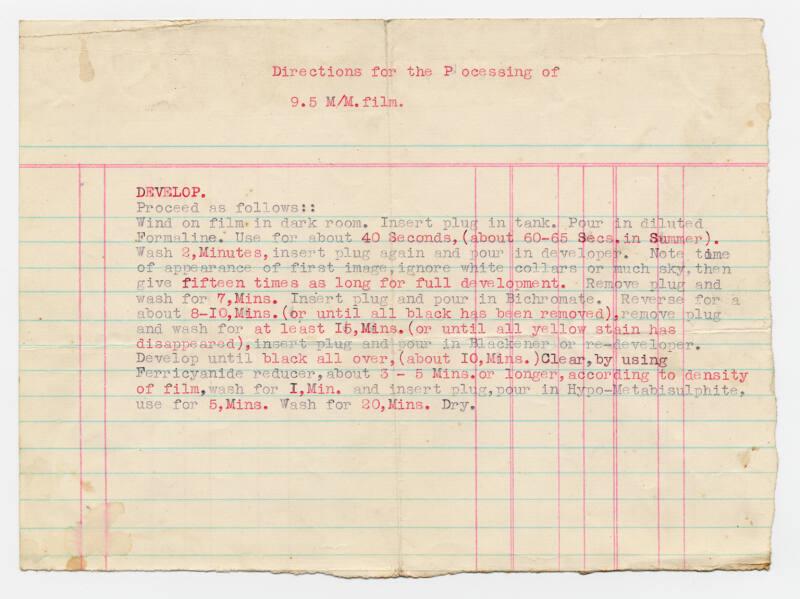 Directions for the P ocessing of
9.5 M/M.film.
DEVELOP.
Proceed as follows::
Wind on film in dark room. Insert plug in tank. Pour in diluted
Formaline. Use for about 40 Seconds,(about 60-65 Secs.in Summer).
Wash 2,Minutes,insert plug again and pour in developer. Note time
of appearance of first image,ignore white collars or much sky,then
give fifteen times as long for full development. Remove plug and
wash for 7,Mins. Insert plug and pour in Bichromate. Reverse for a
about 8-IO,Mins.(or until all black has been removed),remove plug
and wash for at least I5,Mins.(or until all yellow stain has
disappeared),insert plug and pour in Blackener or re-developer.
Develop until black all over,(about IO,Mins.)Clear,by using
Ferricyanide reducer,about 3 - 5 Mins.or longer,according to density
of film,wash for I,Min. and insert plug,pour in Hypo-Metabisulphite,
use for 5,Mins. Wash for 20,Mins. Dry.